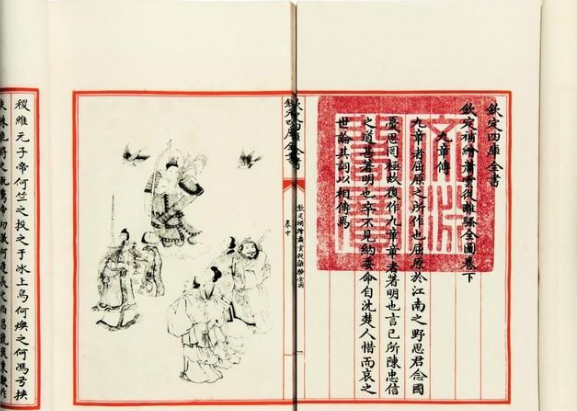 欽定四庫全書
欽定補繪蕭雲從離騷全圖卷下
九章傳
九章者屈原之所作也屈原於江南之野思君念國
憂思罔極故復作九章章者著明也言己所陳忠信
之道甚著明也卒不見納委命自沈楚人惜而哀之
世論其詞以相傳焉
文淵閣寶
欽定四庫全書
欽定補繪蕭雲從離騷全圖
卷下
一
稷維元子帝何竺之投之于冰上鳥何燠之何馮弓挾